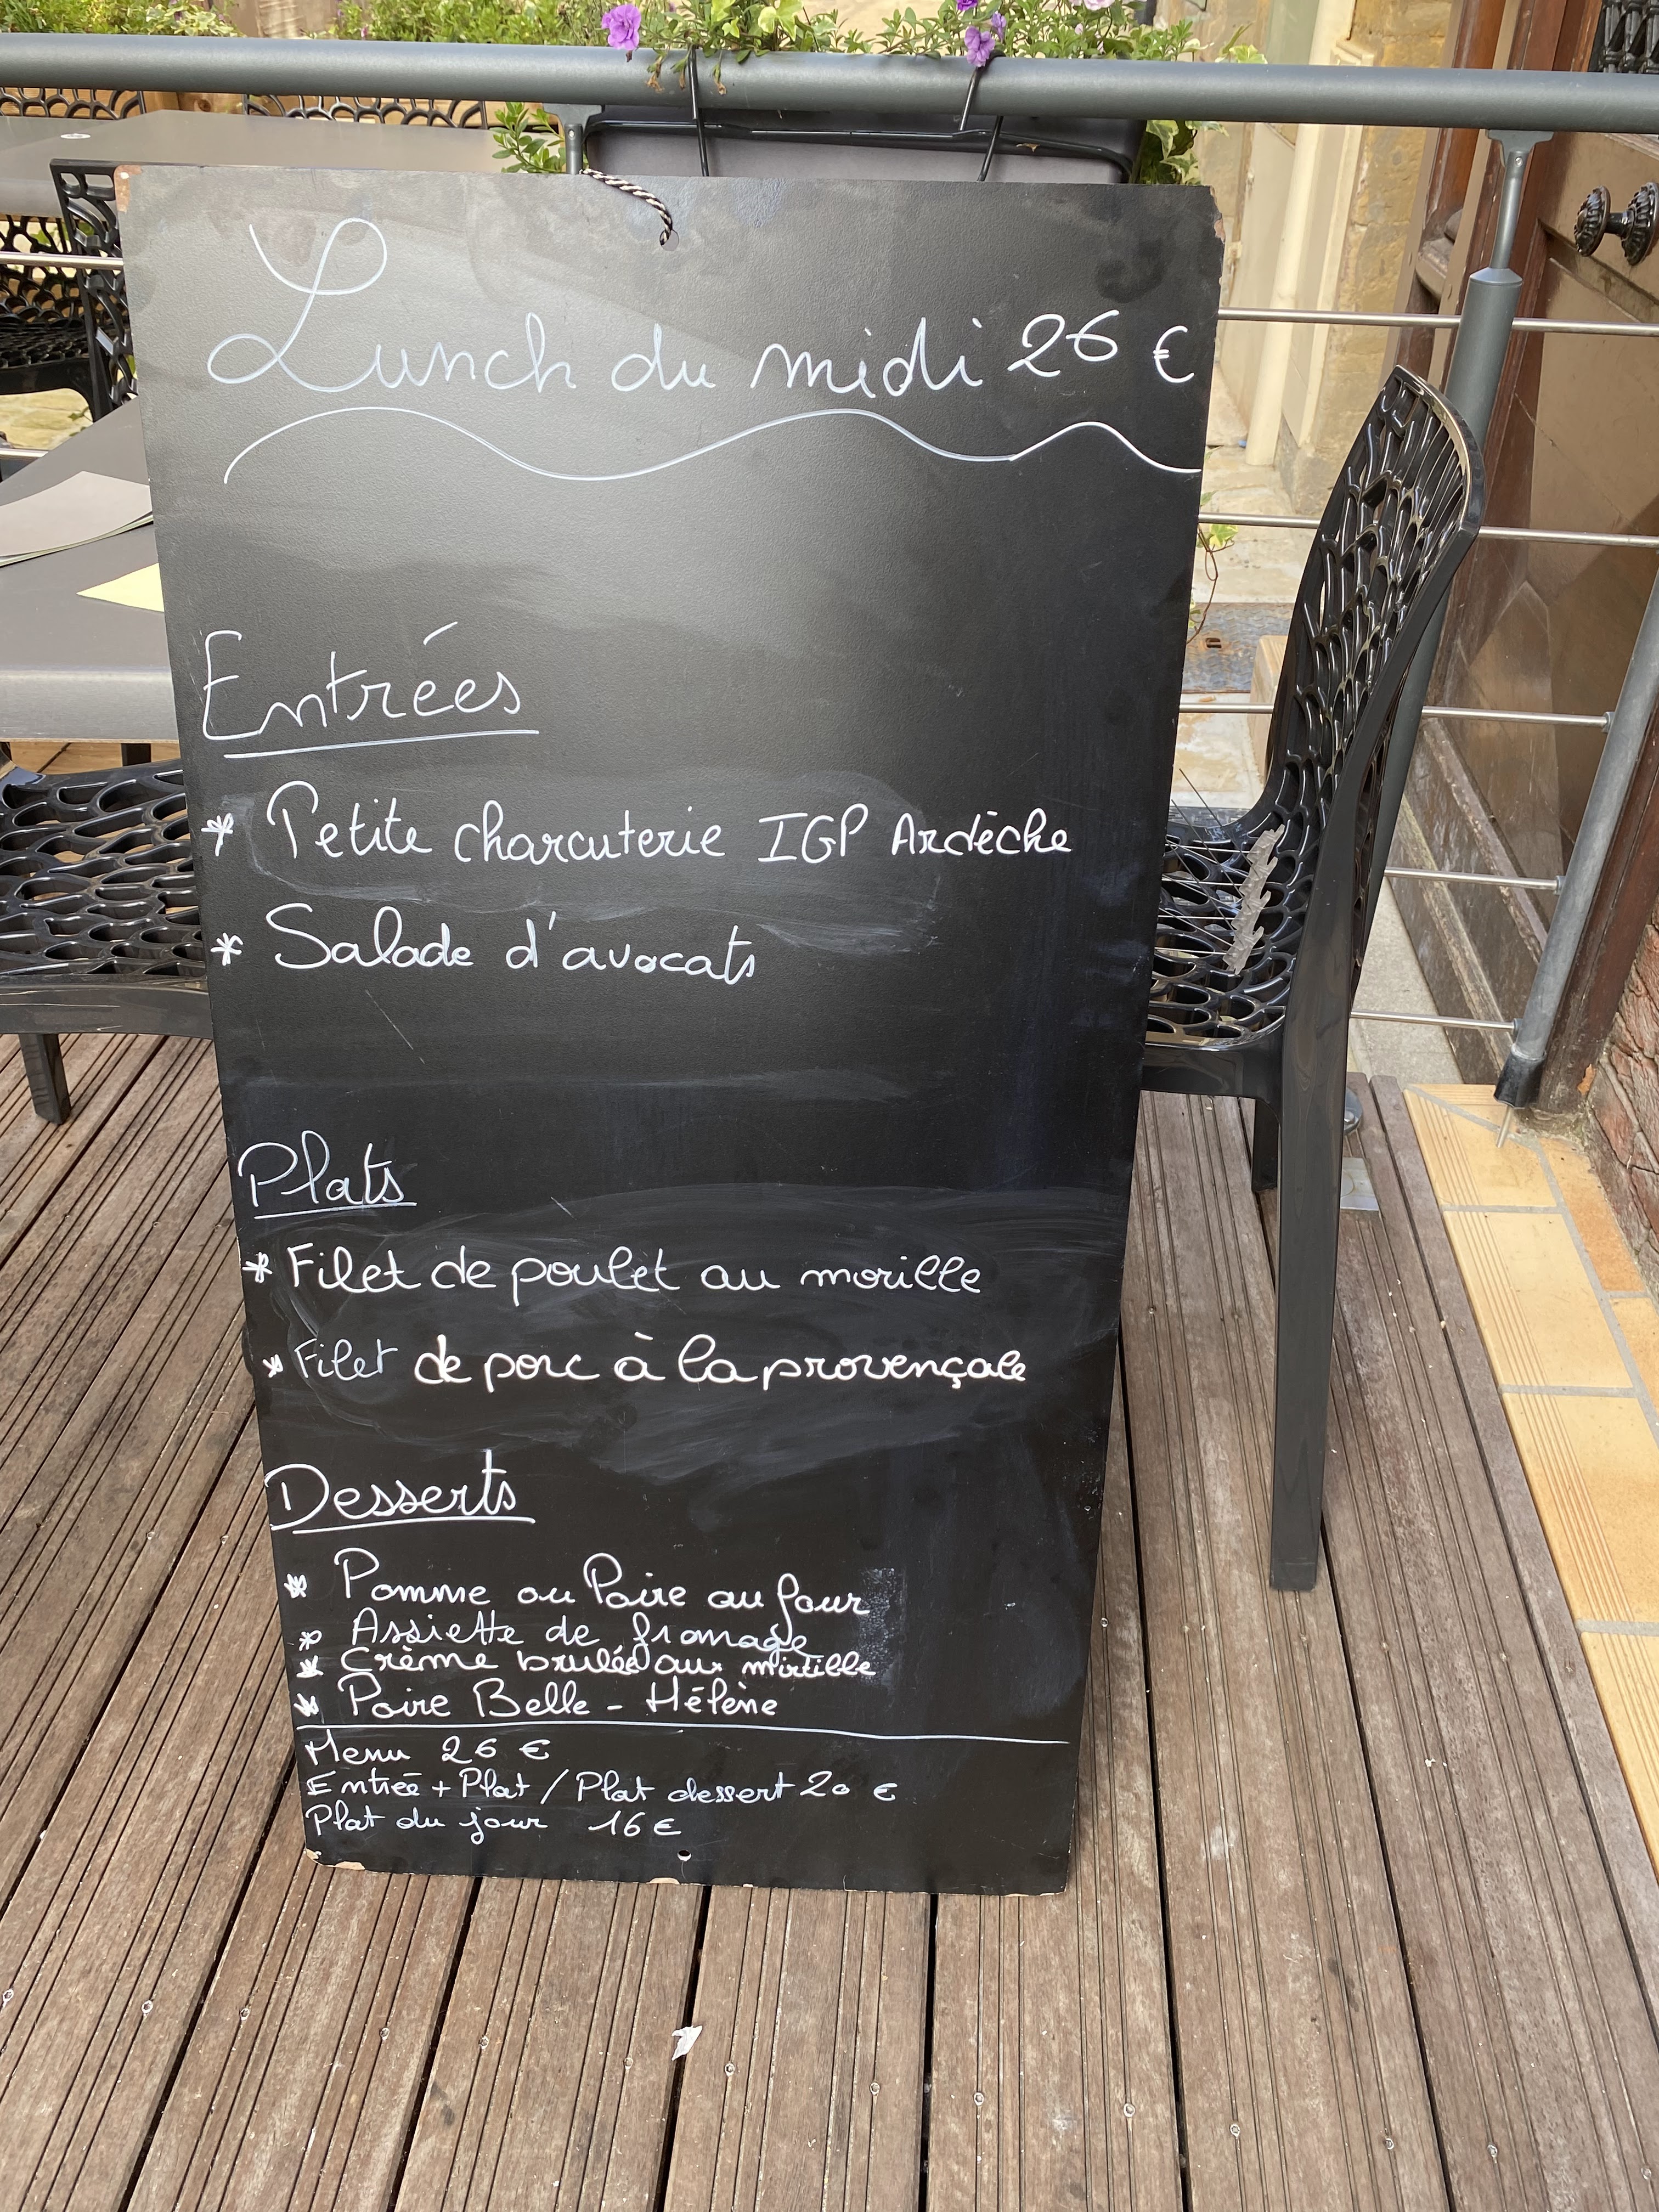 Lunch du midi 26 €
Entrées
* Petite charcuterie IGP Ardèche
* Salade d'avocats
Plats
* Filet de poulet au morille
* Filet de porc à la provençale
Desserts
* Pomme ou Poire au four
* Assiette de fromage
* Crème brulée aux mirtille
* Poire Belle - Hélène
Menu 26 €
Entrée + Plat / Plat dessert 20 €
Plat du jour 16 €